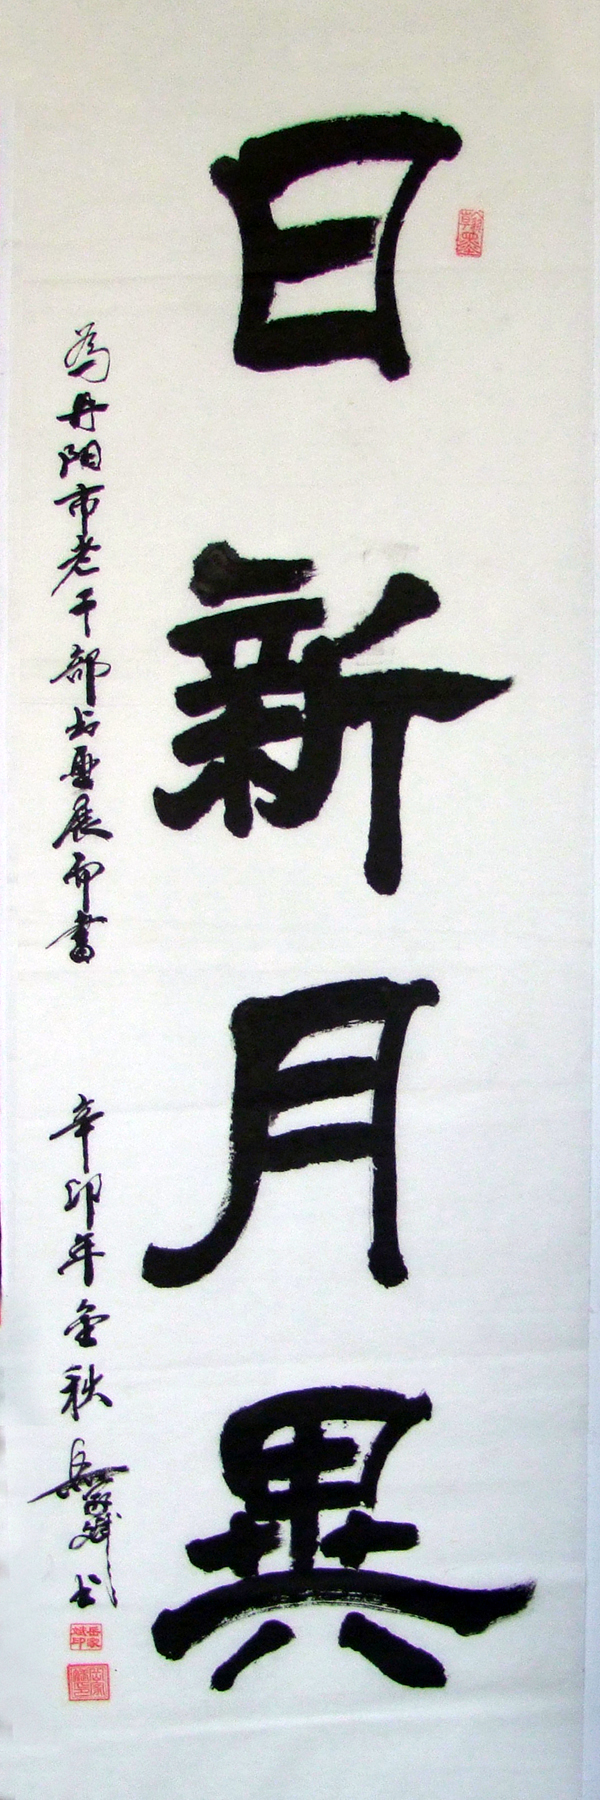 日新月異
為丹阳市老干部书画展而書
辛卯年金秋 岳家斌 书
翰墨
岳家斌印